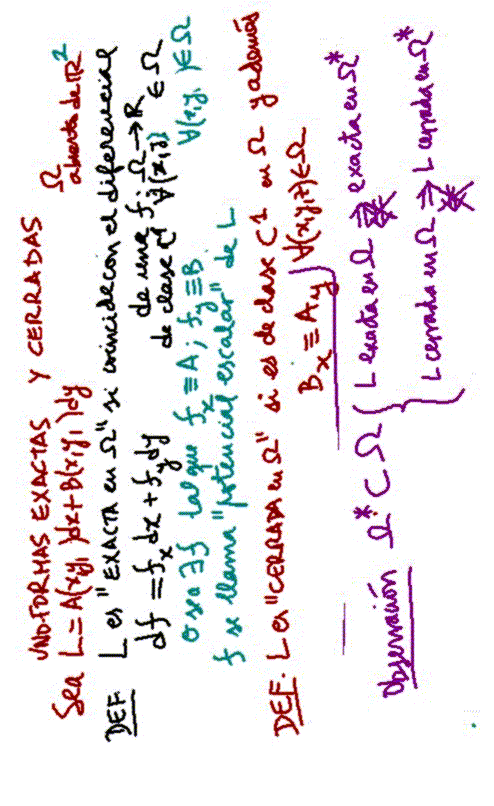 UNO-FORMAS EXACTAS Y CERRADAS
Sea L = A(x,y, )dx + B(x,y, )dy Ω abierto de ℝ²
DEF L es "EXACTA en Ω" si coincide con el diferencial
df = f_x dx + f_y dy de una f: Ω → R
de clase C¹ ∀(x,y,z) ∈ Ω
o sea ∃ f tal que f_x ≡ A ; f_y ≡ B ∀(x,y, ) ∈ Ω
f se llama "potencial escalar" de L
DEF. L es "CERRADA en Ω" si es de clase C¹ en Ω y además
B_x ≡ A_y ∀(x,y,z) ∈ Ω
Observación Ω* ⊂ Ω { L exacta en Ω ⇒ exacta en Ω*
L cerrada en Ω ⇒ L cerrada en Ω*